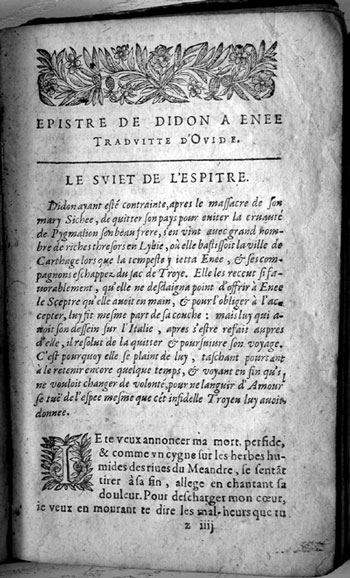 EPISTRE DE DIDON A ENEE
TRADVITTE D'OVIDE.
LE SVIET DE L'ESPITRE.
Didon ayant esté contrainte, apres le massacre de son
mary Sichee, de quitter son pays pour euiter la cruauté
de Pygmalion son beau frere, s'en vint auec grand nom-
bre de riches thresors en Lybie, où elle bastissoit la ville de
Carthage lors que la tempeste y ietta Enee, & ses com-
pagnons eschappez du sac de Troye. Elle les receut si fa-
uorablement, qu'elle ne desdaigna point d'offrir à Enee
le Sceptre qu'elle auoit en main, & pour l'obliger à l'ac-
cepter, luy fit mesme part de sa couche : mais luy qui a-
uoit son dessein sur l'Italie, apres s'estre refait aupres
d'elle, il resolut de la quitter & poursuiure son voyage.
C'est pourquoy elle se plaint de luy, taschant pourtant
à le retenir encore quelque temps, & voyant en fin qu'il
ne vouloit changer de volonté, pour ne languir d'Amour
se tuë de l'espee mesme que cét infidelle Troyen luy auoit
donnee.
IE te veux annoncer ma mort, perfide,
& comme vn cygne sur les herbes hu-
mides des riues du Meandre, se sentãt
tirer à sa fin, allege en chantant sa
douleur. Pour descharger mon cœur,
ie veux en mourant te dire les mal-heurs que tu
z iiij